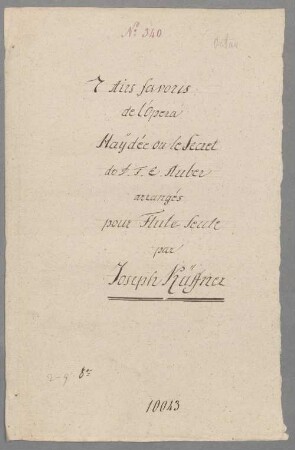 Nº 340
7 Airs favoris
de l'Opera
Haÿdée ou le Secret
de D. F. E. Auber
arrangés
pour Flute Seule
par
Joseph Küffner
10043